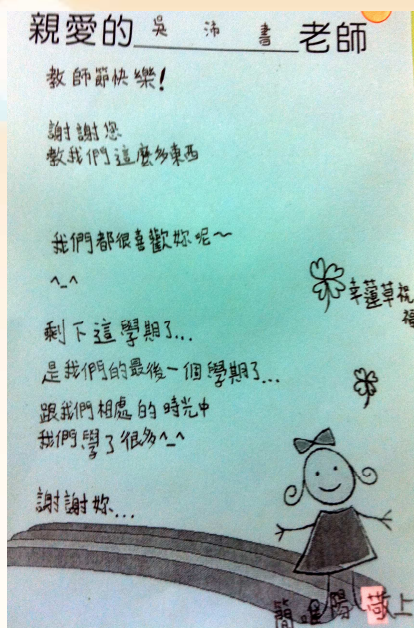 親愛的吳沛書老師
教師節快樂!
謝謝您
教我們這麼多東西
我們都很喜歡妳呢～
^_^
幸蓮草祝
福
剩下這學期了...
是我們的最後一個學期了...
跟我們相處的時光中
我們學了很多^_^
謝謝妳...
簡 陽 敬上